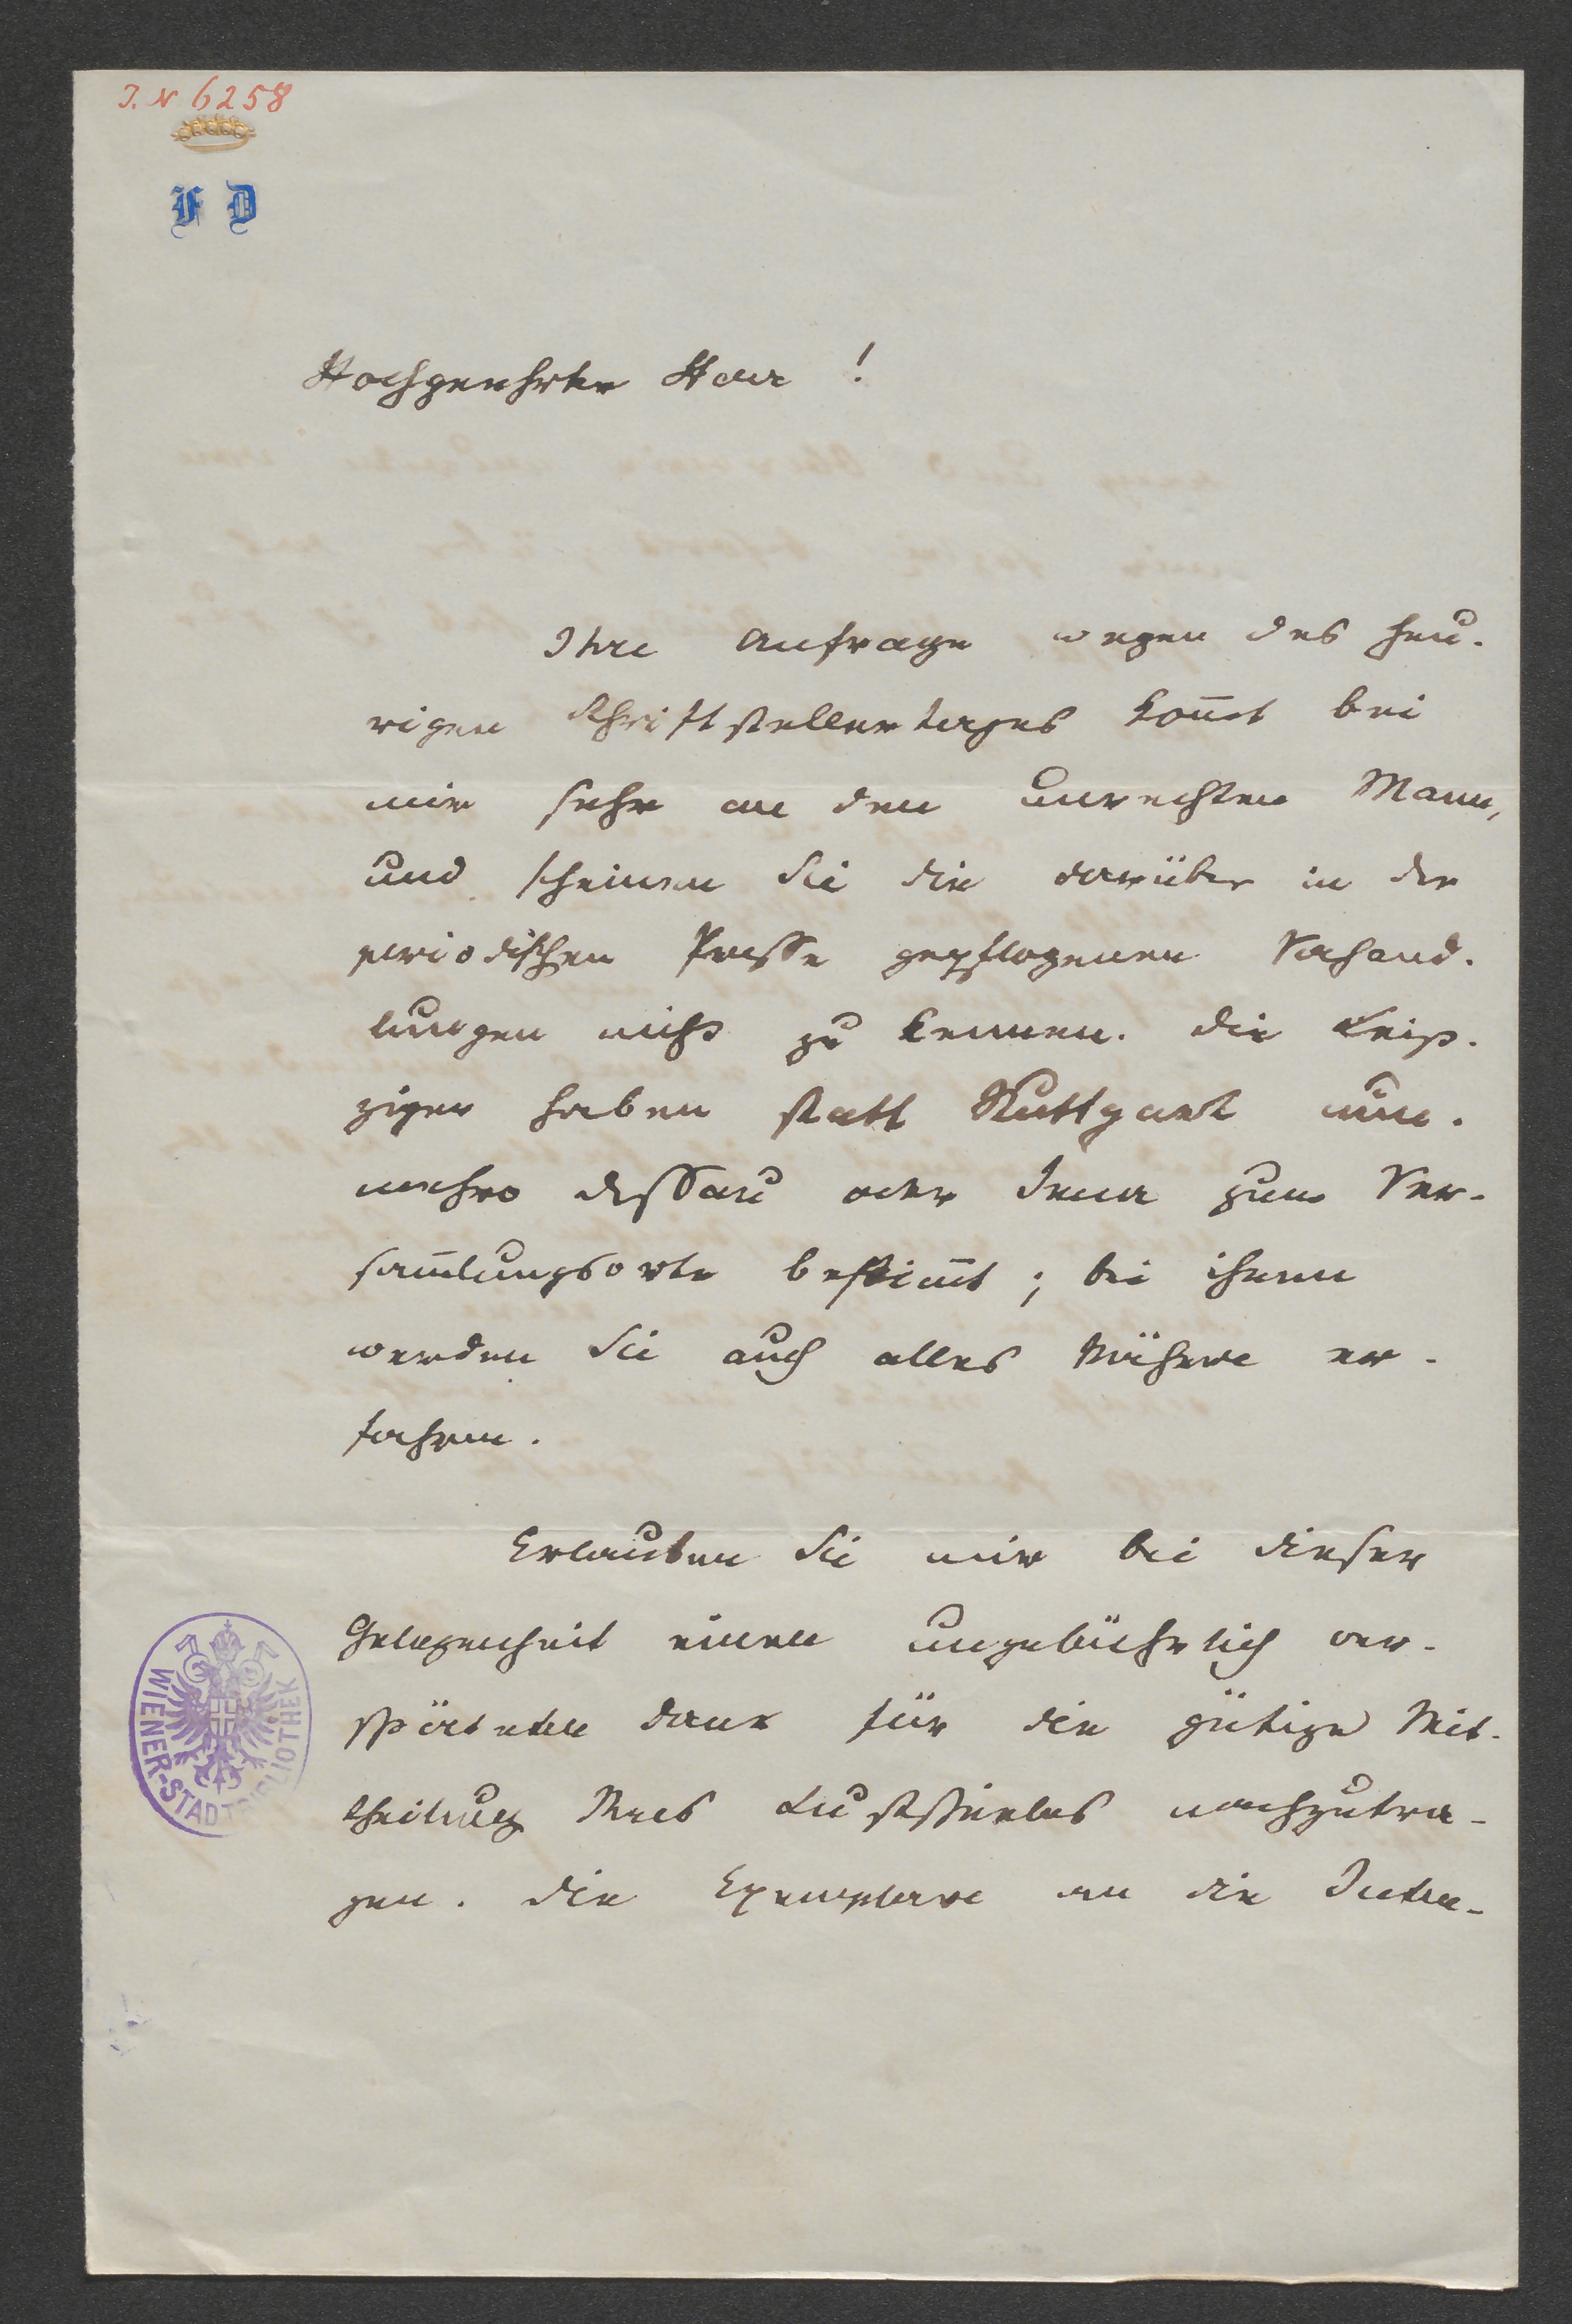 J. N 6258
F D
Hochgeehrter Herr !
Ihre Anfrage wegen des heu-
rigen Schriftstellertages kom̄t bei
mir sehr an den unrechten Mann,
und scheinen Sie die darüber in der
periodischen Presse gepflogenen Verhand-
lungen nicht zu kennen. Die Leip-
ziger haben statt Stuttgart nun-
mehro Dessau oder Jena zum Ver-
sam̄lungsorte bestim̄t ; bei ihnen
werden Sie auch alles Nähere er-
fahren.
Erlauben Sie mir bei dieser
Gelegenheit einen ungebührlich ver-
späteten Dank für die gütige Mit-
theilung Ihres Lustspieles nachzutra-
gen. Die Exemplare an die Inten-
WIENER-STADTBIBLIOTHEK